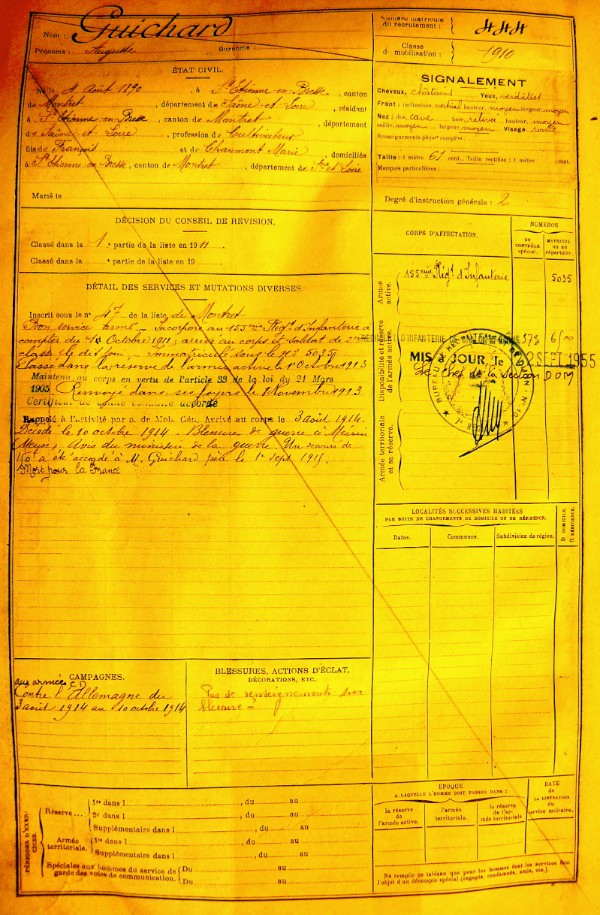 Nom : Guichard
Prénoms : Auguste Surnoms :
Numéro matricule du recrutement : 444
Classe de mobilisation : 1910
ÉTAT CIVIL.
Né le 4 Août 1890, à St Etienne-en-Bresse, canton
de Montret, département de Saône-et-Loire, résidant
à St Etienne-en-Bresse, canton de Montret, département
de Saône et Loire, profession de Cultivateur
fils de François et de Chaumont Marie, domiciliés
à St Etienne-en-Bresse, canton de Montret, département de Sne et Loire
Marié le
SIGNALEMENT
Cheveux, châtains Yeux, verdâtres
Front : inclinaison, vertical hauteur, moyen largeur, moyen
Nez : dos, cave base, relevé hauteur, moyen
saillie, moyen largeur, moyen Visage rond
Renseignements physion. complém.
Taille : 1 mètre 61 cent., Taille rectifiée : 1 mètre cent.
Marques particulières :
Degré d'instruction générale : 2
DÉCISION DU CONSEIL DE REVISION.
Classé dans la 1e partie de la liste en 1911
Classé dans la e partie de la liste en 19
CORPS D'AFFECTATION.
NUMÉROS
DU CONTRÔLE SPÉCIAL.
MATRICULE OU AU RÉPERTOIRE.
Armée active.
155ème Régt d'Infanterie
5035
Disponibilité et réserve de l'armée active.
D'INFANTERIE
MIS A JOUR, le SEPT 1955
Le Chef de la Section DOM
Armée territoriale et sa réserve.
DÉTAIL DES SERVICES ET MUTATIONS DIVERSES.
Inscrit sous le n° 47 de la liste de Montret
Bon service armé - Incorporé au 155ème Régt d'Infanterie à
compter du 1918 Octobre 1911; arrivé au corps et soldat de 2ème
classe le dit jour. Immatriculé sous le n° 5035
Passé dans la réserve de l'armée active le 1er Octobre 1913
Maintenu au corps en vertu de l'article 33 de la loi du 21 Mars
1905 Renvoyé dans ses foyers le Novembre 1913
Certificat de bonne conduite accordé
Rappelé à l'activité par o. de Mob. Gén. Arrivé au corps le 3 août 1914.
Décédé le 10 octobre 1914. Blessures de guerre à
Meuse, Avis du ministre de la guerre. Un secours de
150f a été accordé à M. Guichard père le 1er Sept. 1915.
Mort pour la France
LOCALITÉS SUCCESSIVES HABITÉES
PAR SUITE DE CHANGEMENTS DE DOMICILE OU DE RÉSIDENCE.
Dates.
Communes.
Subdivision de région.
D DOMICILE
R RÉSIDENCE.
CAMPAGNES.
aux armées C.D
Contre l'Allemagne du
3 août 1914 au 10 octobre 1914
BLESSURES, ACTIONS D'ÉCLAT,
DÉCORATIONS, ETC.
Pas de renseignements sur
blessure
PÉRIODES D'EXERCICES.
Réserve...
1re dans l , du au
2e dans l , du au
Supplémentaire dans l , du au
Armée territoriale.
1re dans l , du au
Supplémentaire dans l , du au
Spéciales aux hommes du service de
garde des voies de communication.
Du au
Du au
ÉPOQUE
À LAQUELLE L'HOMME DOIT PASSER DANS :
la réserve de l'armée active.
l'armée territoriale.
la réserve de l'armée territoriale
DATE
DE LA LIBÉRATION DU service militaire.
Ne remplir ce tableau que pour les hommes dont les services font
l'objet d'un décompte spécial (engagés, condamnés, omis, etc.)